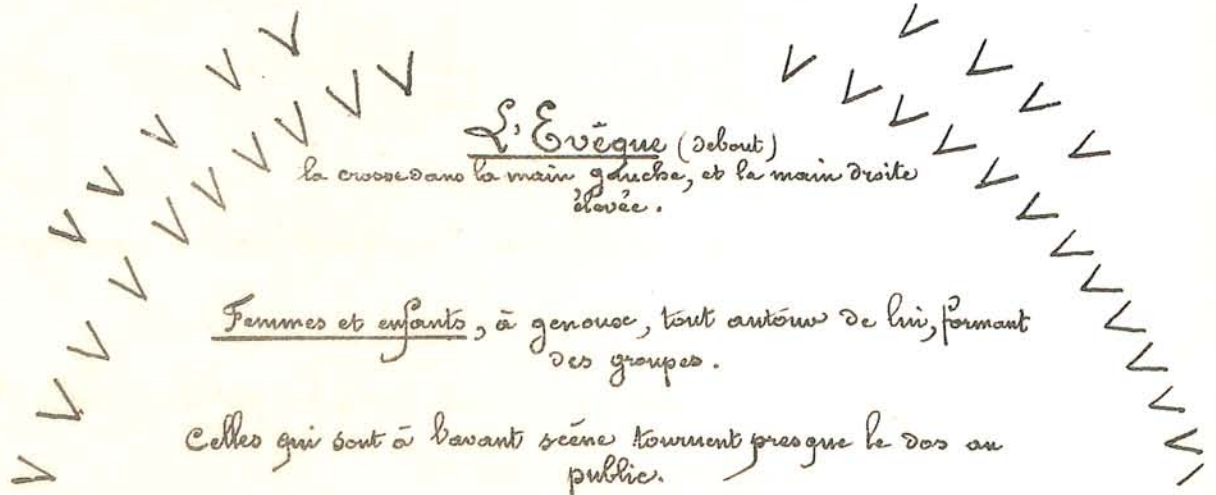 L'Evêque (debout)
la crosse dans la main gauche, et la main droite
élevée.
Femmes et enfants, à genoux, tout autour de lui, formant
des groupes.
Celles qui sont à l'avant scène tournent presque le dos au
public.